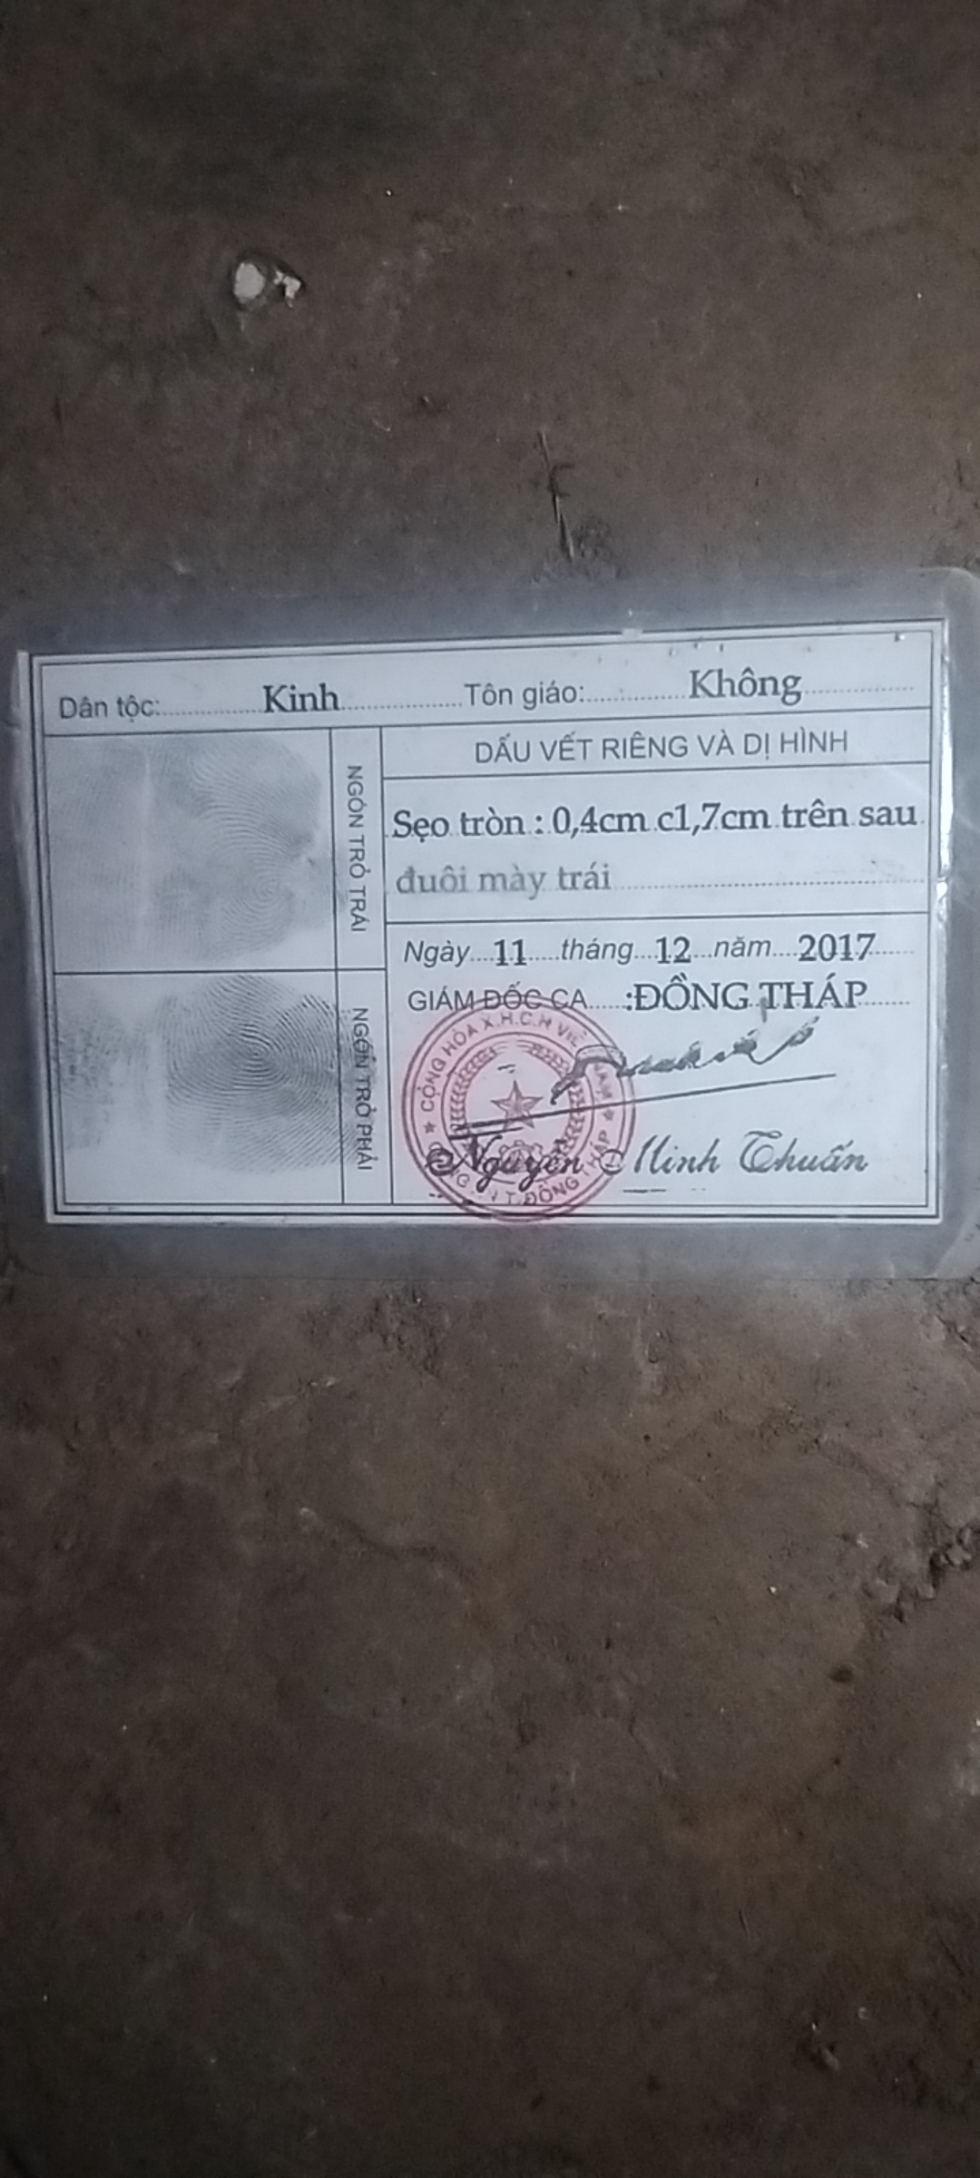 Dân tộc: Kinh Tôn giáo: Không
DẤU VẾT RIÊNG VÀ DỊ HÌNH
Sẹo tròn : 0,4cm c1,7cm trên sau
đuôi mày trái
NGÓN TRỎ TRÁI
NGÓN TRỎ PHẢI
Ngày 11 tháng 12 năm 2017
GIÁM ĐỐC CA :ĐỒNG THÁP
CỘNG HÒA X.H.C.N VIỆT NAM
T. ĐỒNG THÁP
Nguyễn Minh Thuấn